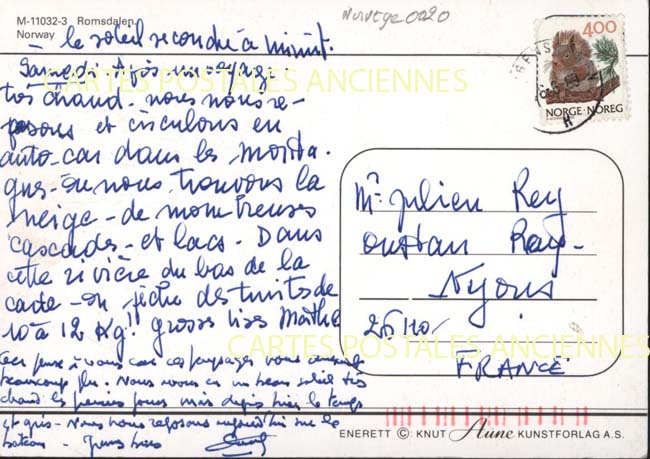 M-11032-3 Romsdalen.
Norway
Norvège 0020
400
NORGE·NOREG
CARTES POSTALES ANCIENNES
le soleil se couche à minuit.
Samedi
très chaud - nous nous re-
posons et circulons en
auto-car dans les monta-
gnes - où nous trouvons la
neige - de nombreuses
cascades - et lacs - Dans
cette rivière du bas de la
carte - on pêche des truites de
10 à 12 Kg! grosses bises Marthe
pense à vous car ces paysages vous
beaucoup plu. Nous avons eu un beau soleil très
chaud les premiers jours mais depuis hier le temps
est gris - Nous nous reposons aujourd'hui sur le
bateau -
Mr Julien Rey
Nyons
26110-
FRANCE
CARTES POSTALES ANCIENNES
ENERETT ©: KNUT Aune KUNSTFORLAG A.S.